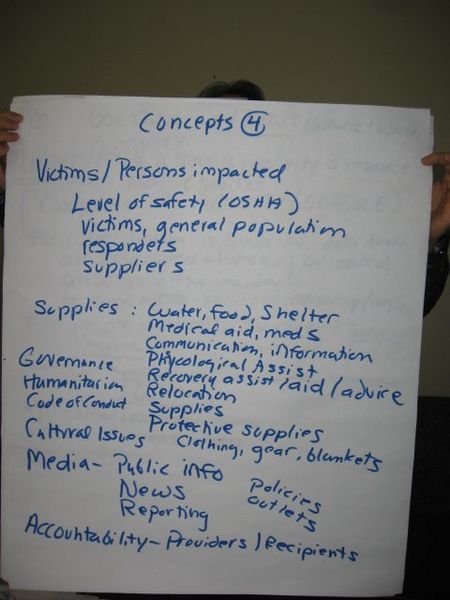 Concepts 4
Victims/Persons impacted
Level of safety (OSHA)
victims, general population
responders
suppliers
Supplies : Water, Food, Shelter
Medical aid, meds
Communication, information
Governance Phycological Assist
Humanitarian Recovery assist/aid/advice
Code of Conduct Relocation
Supplies
Cultural Issues Protective supplies
Clothing, gear, blankets
Media - Public info
News Policies
Reporting outlets
Accountability - Providers/Recipients